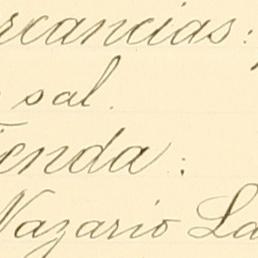 rcancias:
sal.
Tienda:
Nazario La